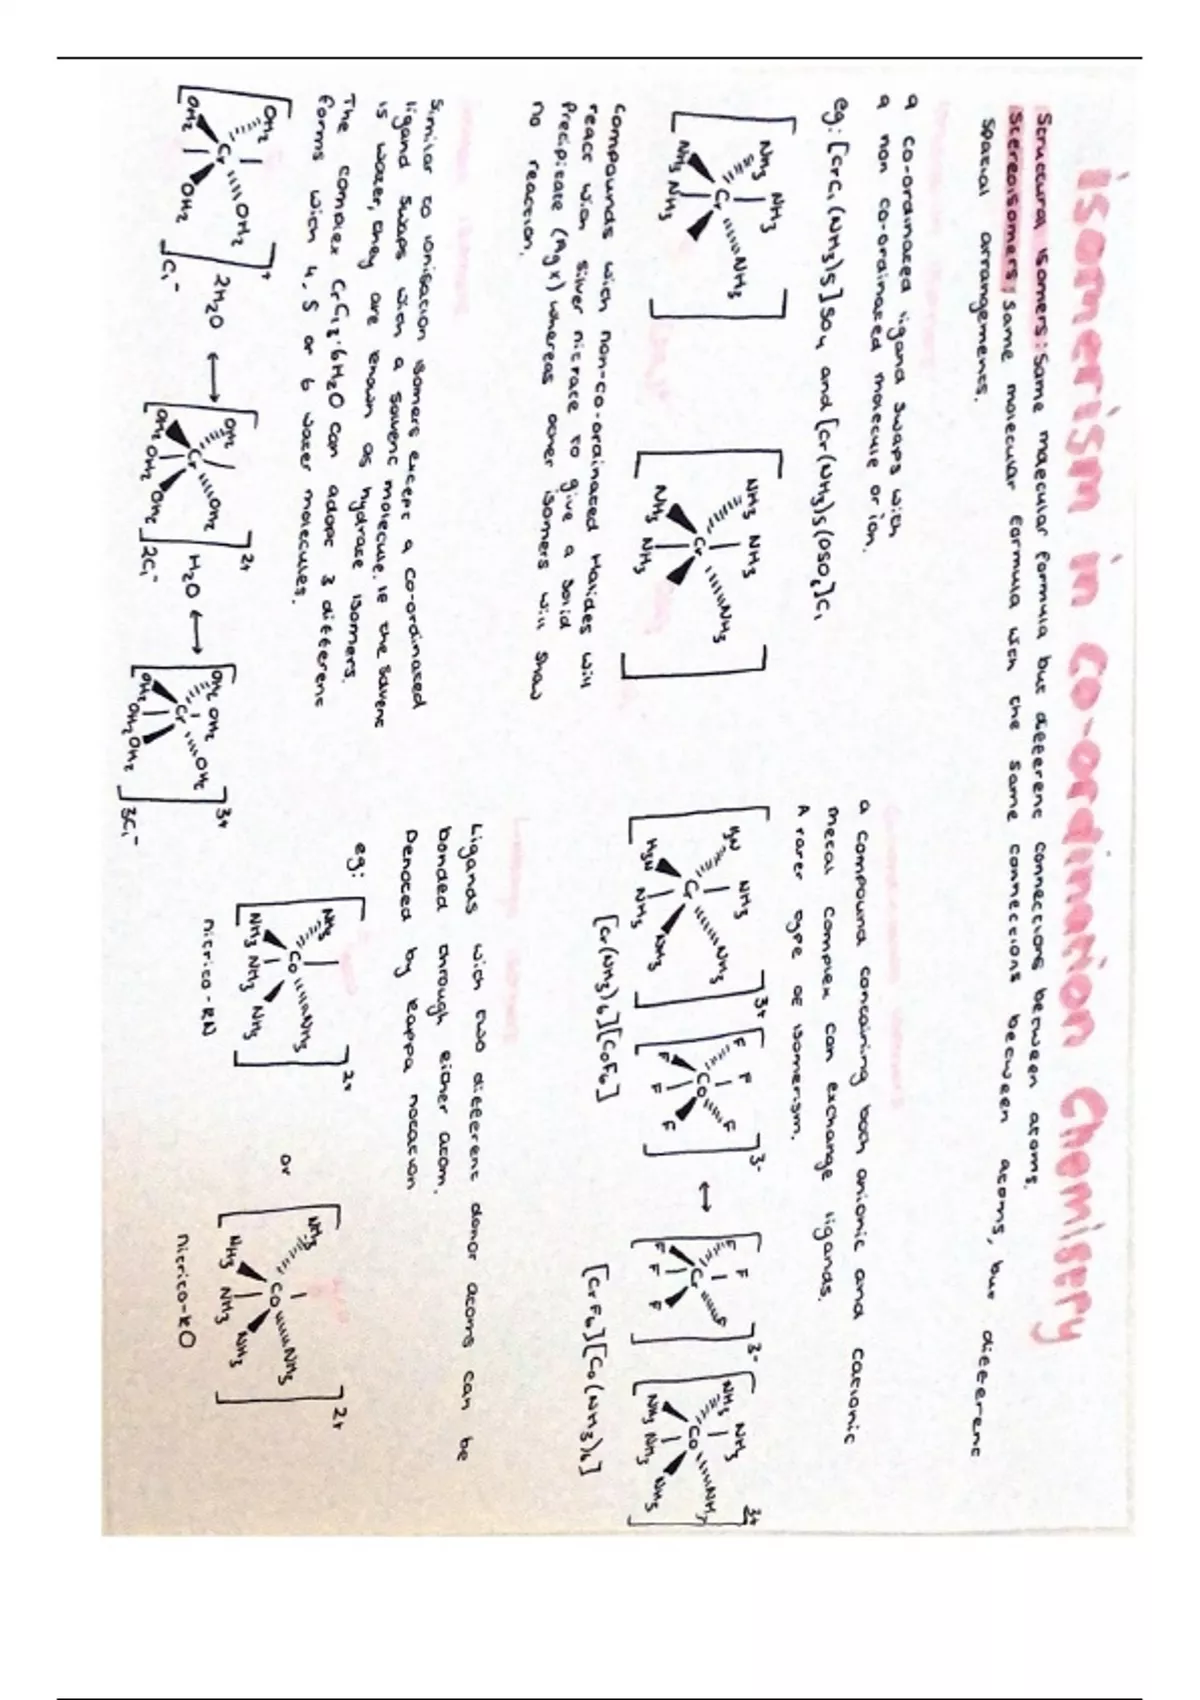 isomerism in co-ordination chemistry
Structural isomers: Same molecular formula but different connections between atoms.
Stereoisomers: Same molecular formula with the same connections between atoms, but different
spacial arrangements.
a co-ordinated ligand swaps with
a non co-ordinated molecule or ion.
eg: [CrCl(NH3)5]SO4 and [Cr(NH3)5(OSO3)]Cl
NH3 NH3 NH3 NH3 NH3 Cr
NH3 NH3 NH3 NH3 NH3 Cr
compounds with non-co-ordinated Halides will
react with silver nitrate to give a solid
precipitate (AgX) whereas other isomers will show
no reaction.
similar to ionisation isomers except a co-ordinated
ligand swaps with a solvent molecule. If the solvent
is water, they are known as hydrate isomers.
The complex CrCl3·6H2O can adopt 3 different
forms with 4, 5 or 6 water molecules.
[OH2 OH2 Cr OH2 OH2]+ Cl- 2H2O ⟷ [OH2 OH2 Cr OH2 OH2 OH2]2+ 2Cl- H2O ⟷ [OH2 OH2 OH2 Cr OH2 OH2 OH2]3+ 3Cl-
a compound containing both anionic and cationic
metal complex can exchange ligands.
A rarer type of isomerism.
[H3N H3N NH3 Cr NH3 NH3 NH3]3+ [F F F Co F F F]3- ↔ [F F F Cr F F F]3- [NH3 NH3 NH3 Co NH3 NH3 NH3]3+
[Cr(NH3)6][CoF6]
[CrF6][Co(NH3)6]
Ligands with two different donor atoms can be
bonded through either atom.
Denoted by kappa notation
eg:
[NH3 NH3 Co NH3 NH3 NH3]2+ or [NH3 NH3 Co NH3 NH3 NH3]2+
nitrito-κN
nitrito-κO